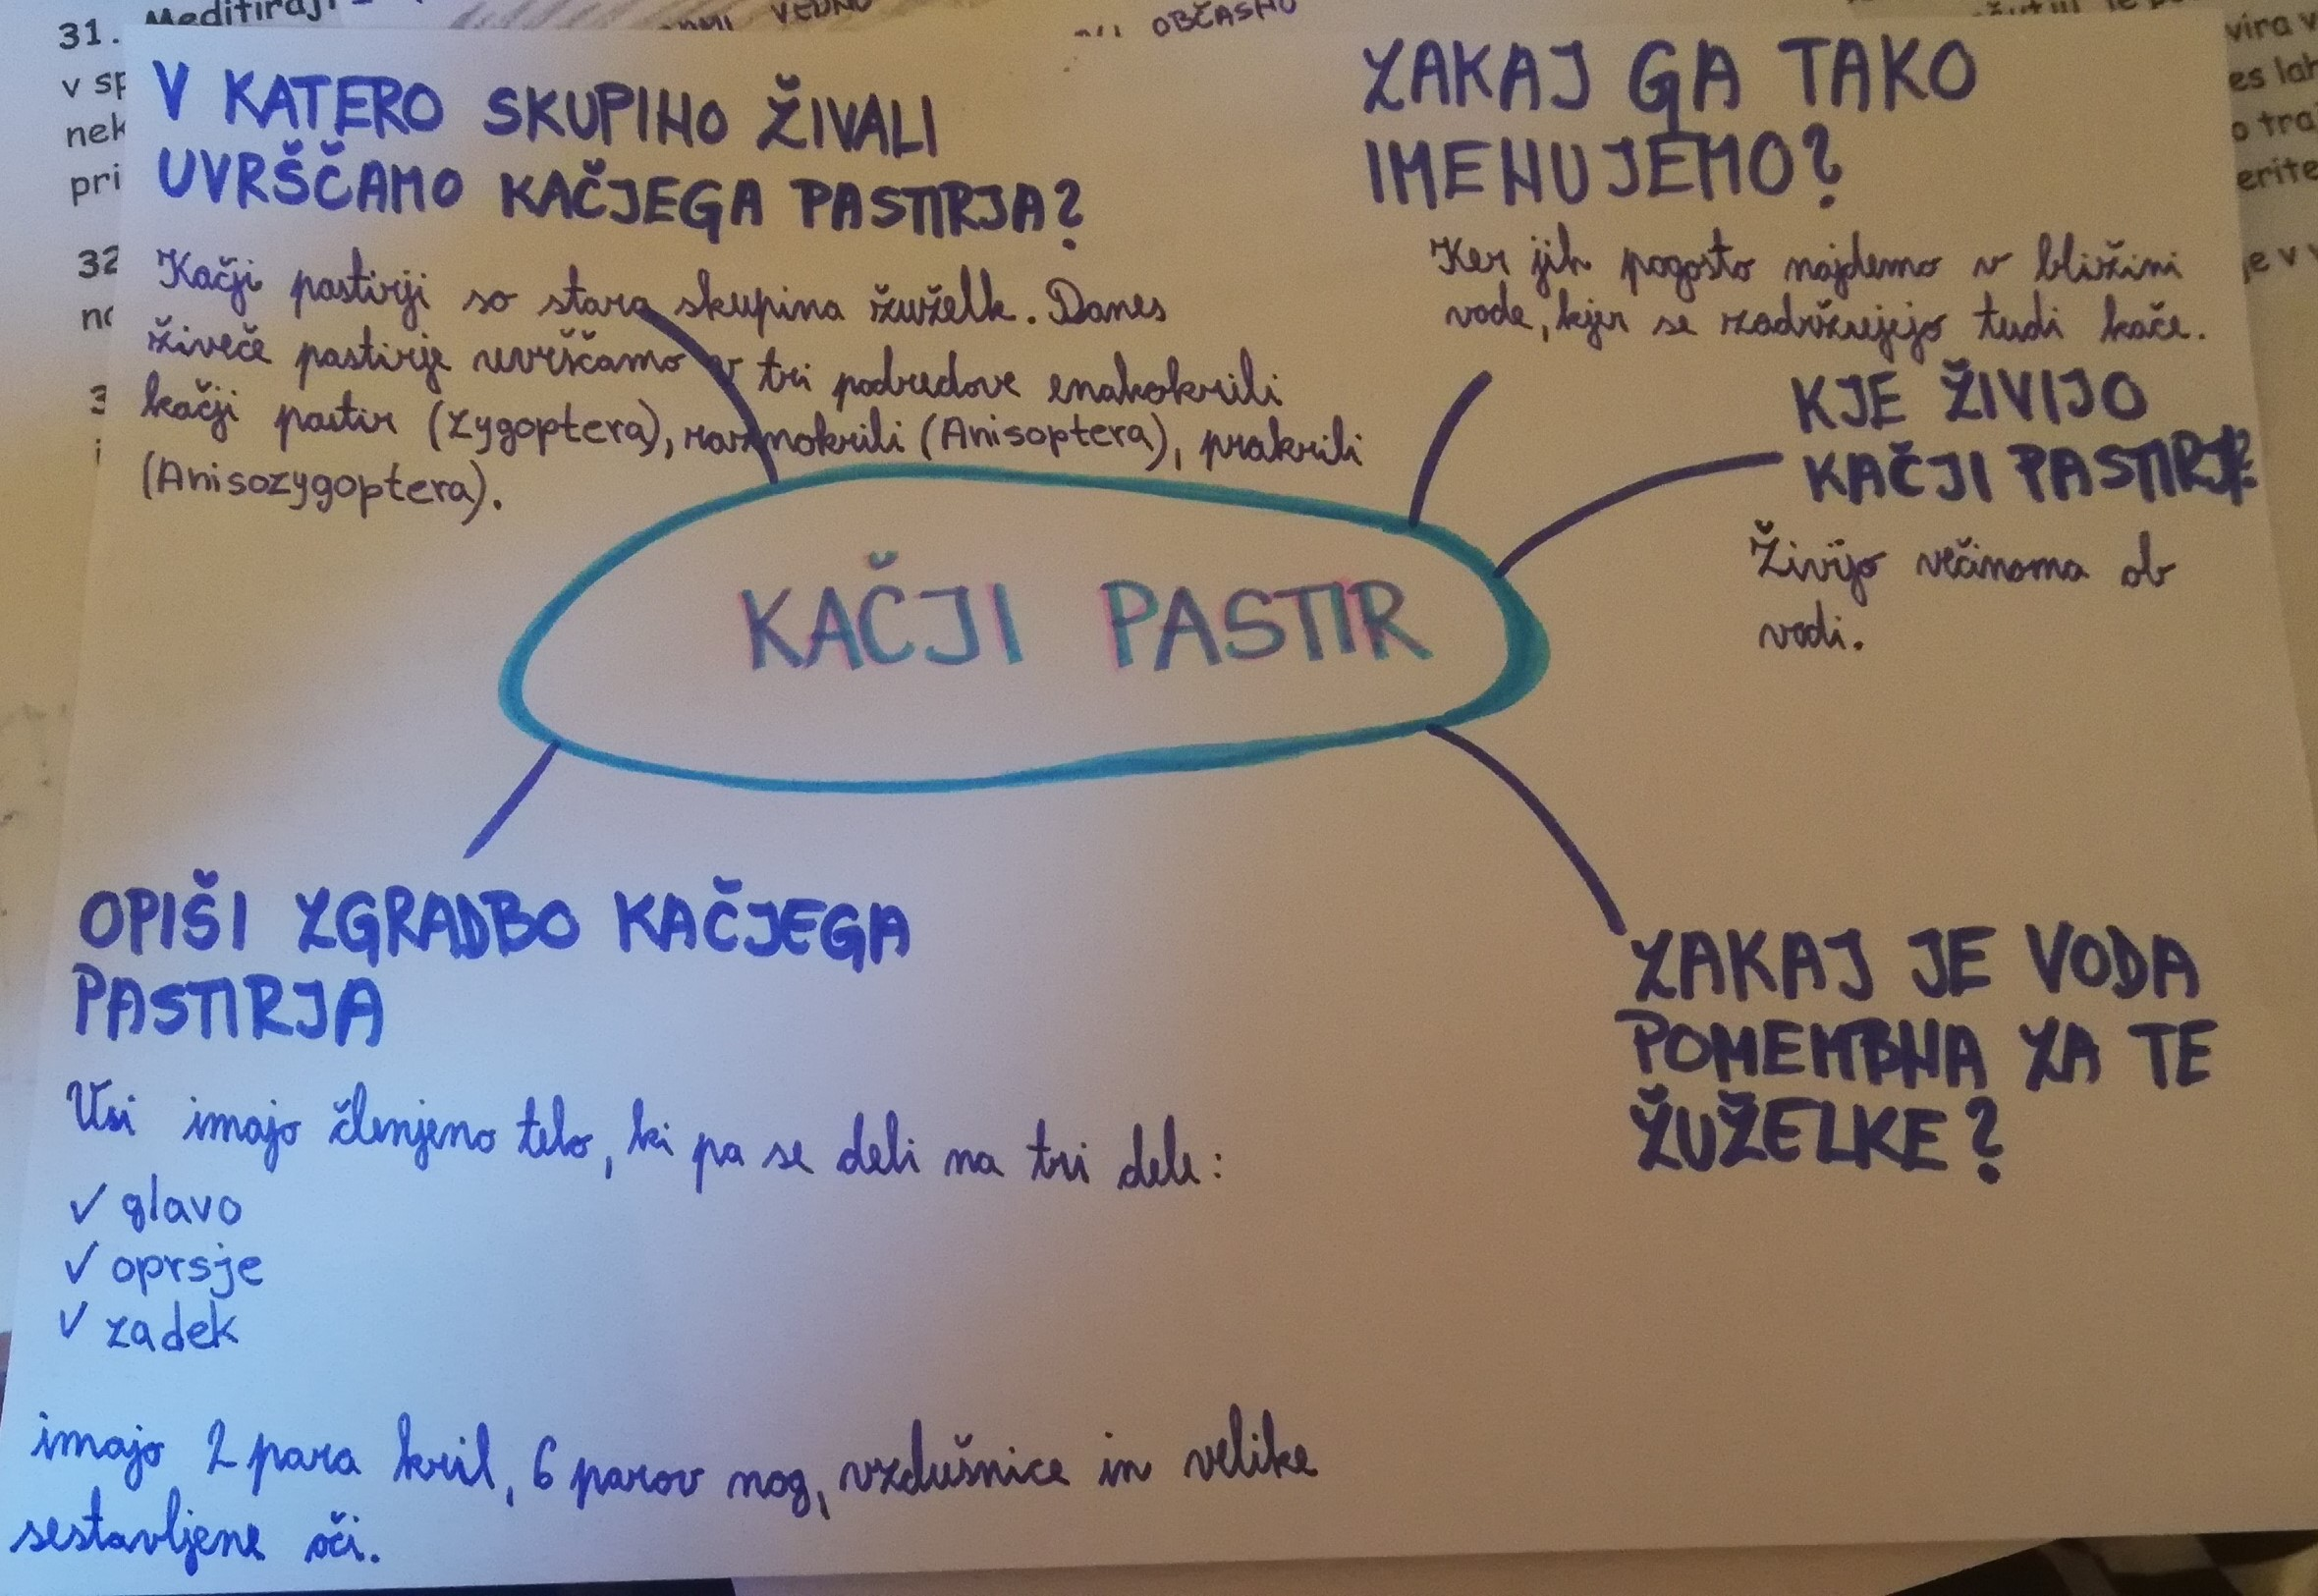 31. Meditiraj
VEDNO
OBČASNO
v sp
nek
pri
32
no
3
i
vira v
es lah
o tra
erite
je v v
V KATERO SKUPINO ŽIVALI
UVRŠČAMO KAČJEGA PASTIRJA?
Kačji pastirji so stara skupina žuželk. Danes
živeče pastirje uvrščamo v tri podredove enakokrili
kačji pastir (Zygoptera), raznokrili (Anisoptera), prakrili
(Anisozygoptera).
ZAKAJ GA TAKO
IMENUJEMO?
Ker jih pogosto najdemo v bližini
vode, kjer se zadržujejo tudi kače.
KJE ŽIVIJO
KAČJI PASTIRJI?
Živijo večinoma ob
vodi.
KAČJI PASTIR
OPIŠI ZGRADBO KAČJEGA
PASTIRJA
Vsi imajo členjeno telo, ki pa se deli na tri dele:
✓ glavo
✓ oprsje
✓ zadek
imajo 2 para kril, 6 parov nog, vzdušnice in velike
sestavljene oči.
ZAKAJ JE VODA
POMEMBNA ZA TE
ŽUŽELKE?